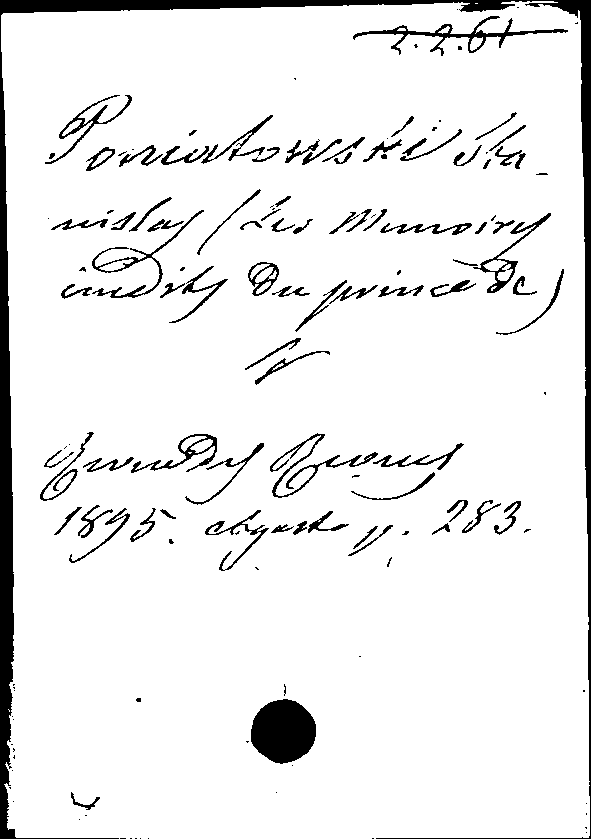 2.2.61
Poniatowski Sta-
nislas (Les Memoires
inedits du prince de)
V
Revue des Revues
1895. Agosto p. 283.